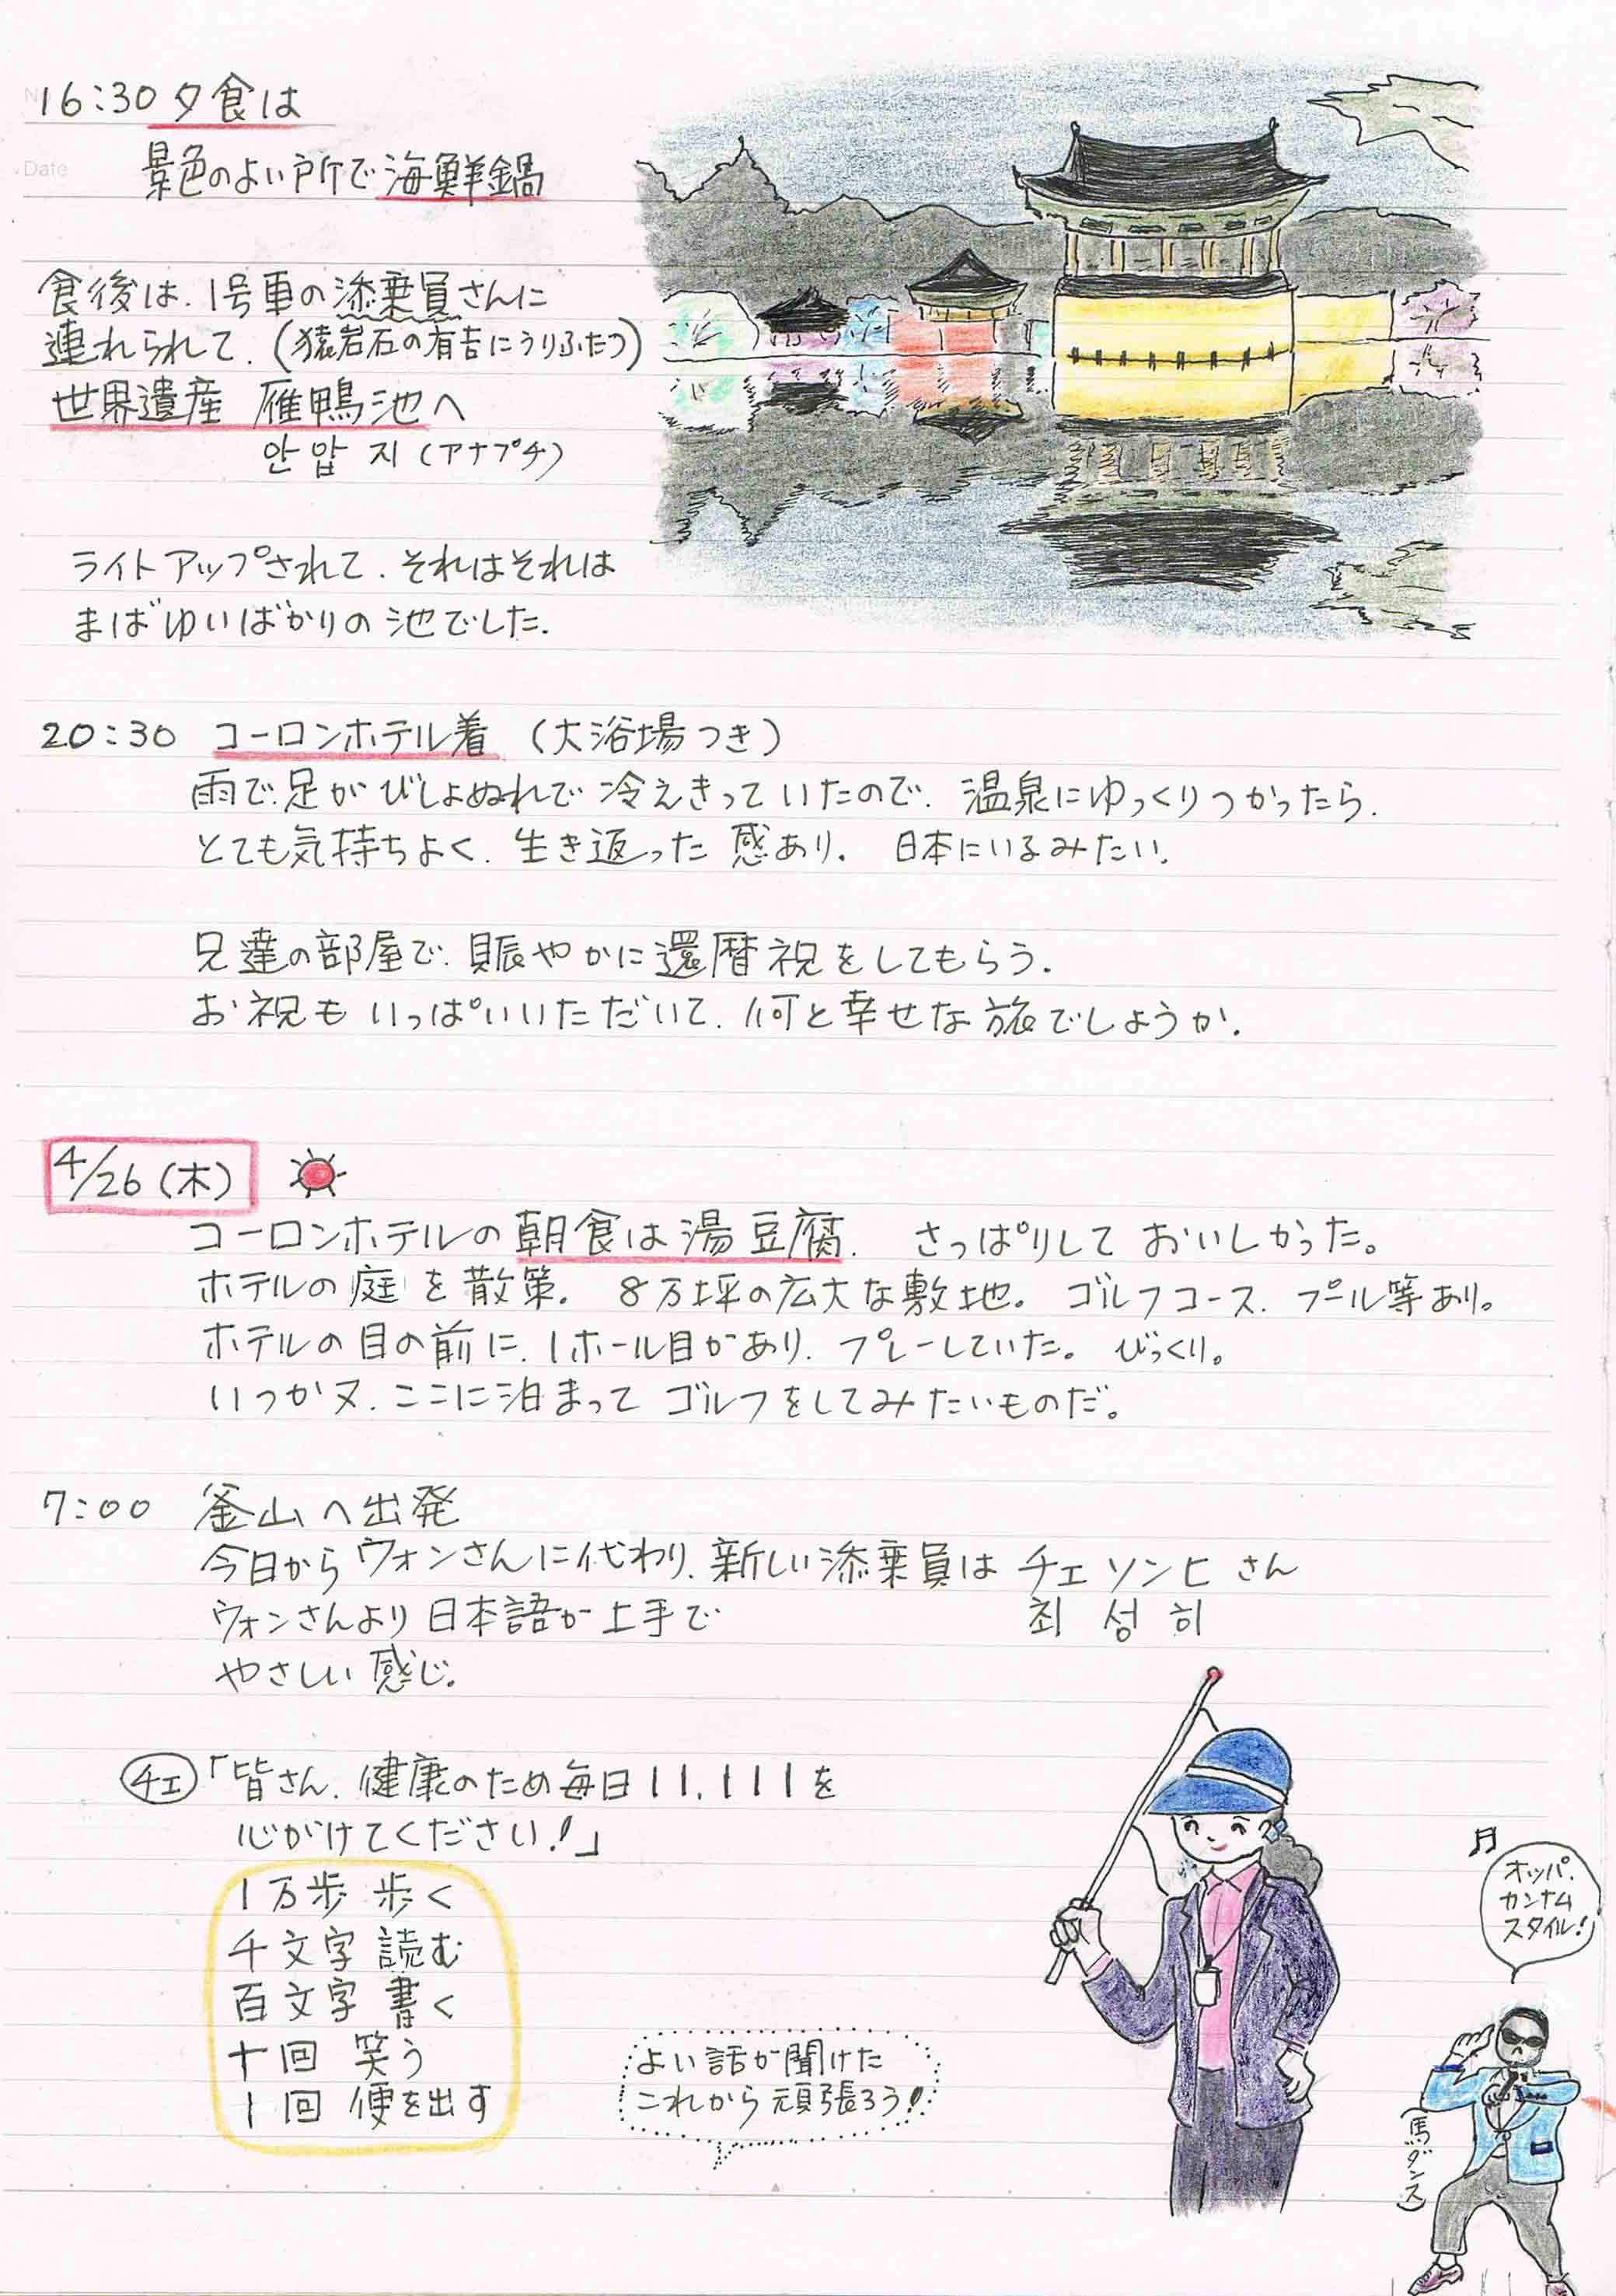 16:30 夕食は
Date
景色のよい所で海鮮鍋
食後は、1号車の添乗員さんに
連れられて、(猿岩石の有吉にうりふたつ)
世界遺産 雁鴨池へ
안압지(アナプチ)
ライトアップされて、それはそれは
まばゆいばかりの池でした。
20:30 コーロンホテル着 (大浴場つき)
雨で、足がびしょぬれで冷えきっていたので、温泉にゆっくりつかったら、
とても気持ちよく、生き返った感あり。 日本にいるみたい。
兄達の部屋で、賑やかに還暦祝をしてもらう。
お祝もいっぱいいただいて、何と幸せな旅でしょうか。
4/26(木)
コーロンホテルの朝食は湯豆腐。 さっぱりしておいしかった。
ホテルの庭を散策。 8万坪の広大な敷地。 ゴルフコース、プール等あり。
ホテルの目の前に、1ホール目があり、プレーしていた。 びっくり。
いつか又、ここに泊まってゴルフをしてみたいものだ。
7:00 釜山へ出発
今日からウォンさんに代わり、新しい添乗員は チェ ソンヒ さん
최 성 희
ウォンさんより日本語が上手で
やさしい感じ。
チェ「皆さん、健康のため毎日11,111を
心がけてください!」
1万歩 歩く
千文字 読む
百文字 書く
十回 笑う
1回 便を出す
よい話が聞けた
これから頑張ろう!
オッパ、
カンナム
スタイル!
(馬ダンス)